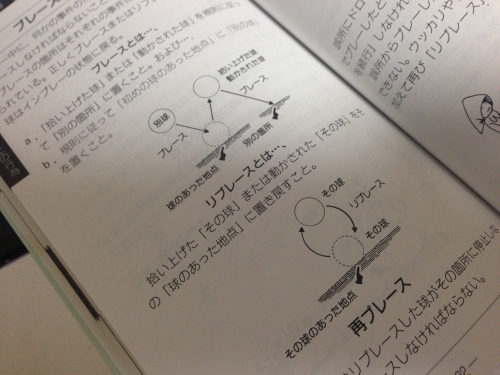 プレース
中に、何かの事件の
ースしなければならないこと
プレースの箇所はそれぞれの事件
られている。正しくプレースまたはリプレ
球はインプレーの状態に戻る。
プレースとは…、
a．「拾い上げた球」または「動かされた球」を規則に従っ
て「別の箇所」に置くこと。および…、
b．規則に従って「初めの球のあった地点」に「別の球」
を置くこと。
拾い上げた球
動かされた球
別の球
プレース
プレース
球のあった地点
別の箇所
リプレースとは…、
拾い上げた「その球」または動かされた「その球」をそ
の「球のあった地点」に置き戻すこと。
その球
リプレース
その球
その球のあった地点
再プレース
リプレースした球がその箇所に停止しな
ースしなければならない。
誤所にドロ
でプレーしたと
を続行」しなければ
誤所からプレーし
できない。ウッカリや
加えて再び「リプレース